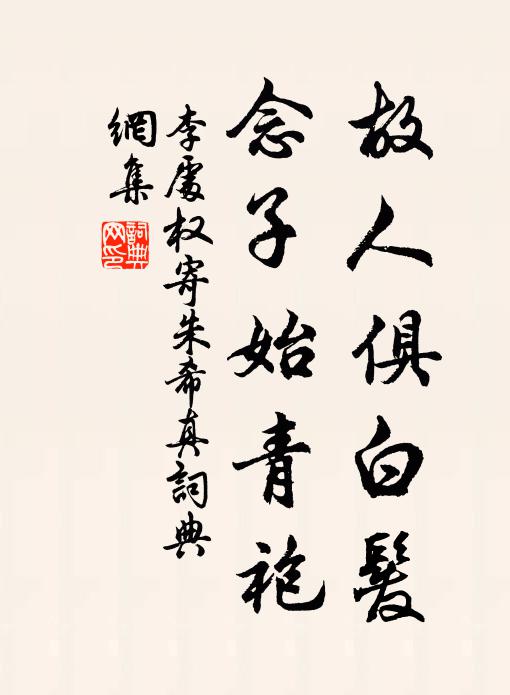 故人俱白髮
念子始青袍
李處权寄朱希真詞典
網集
詞典
网印